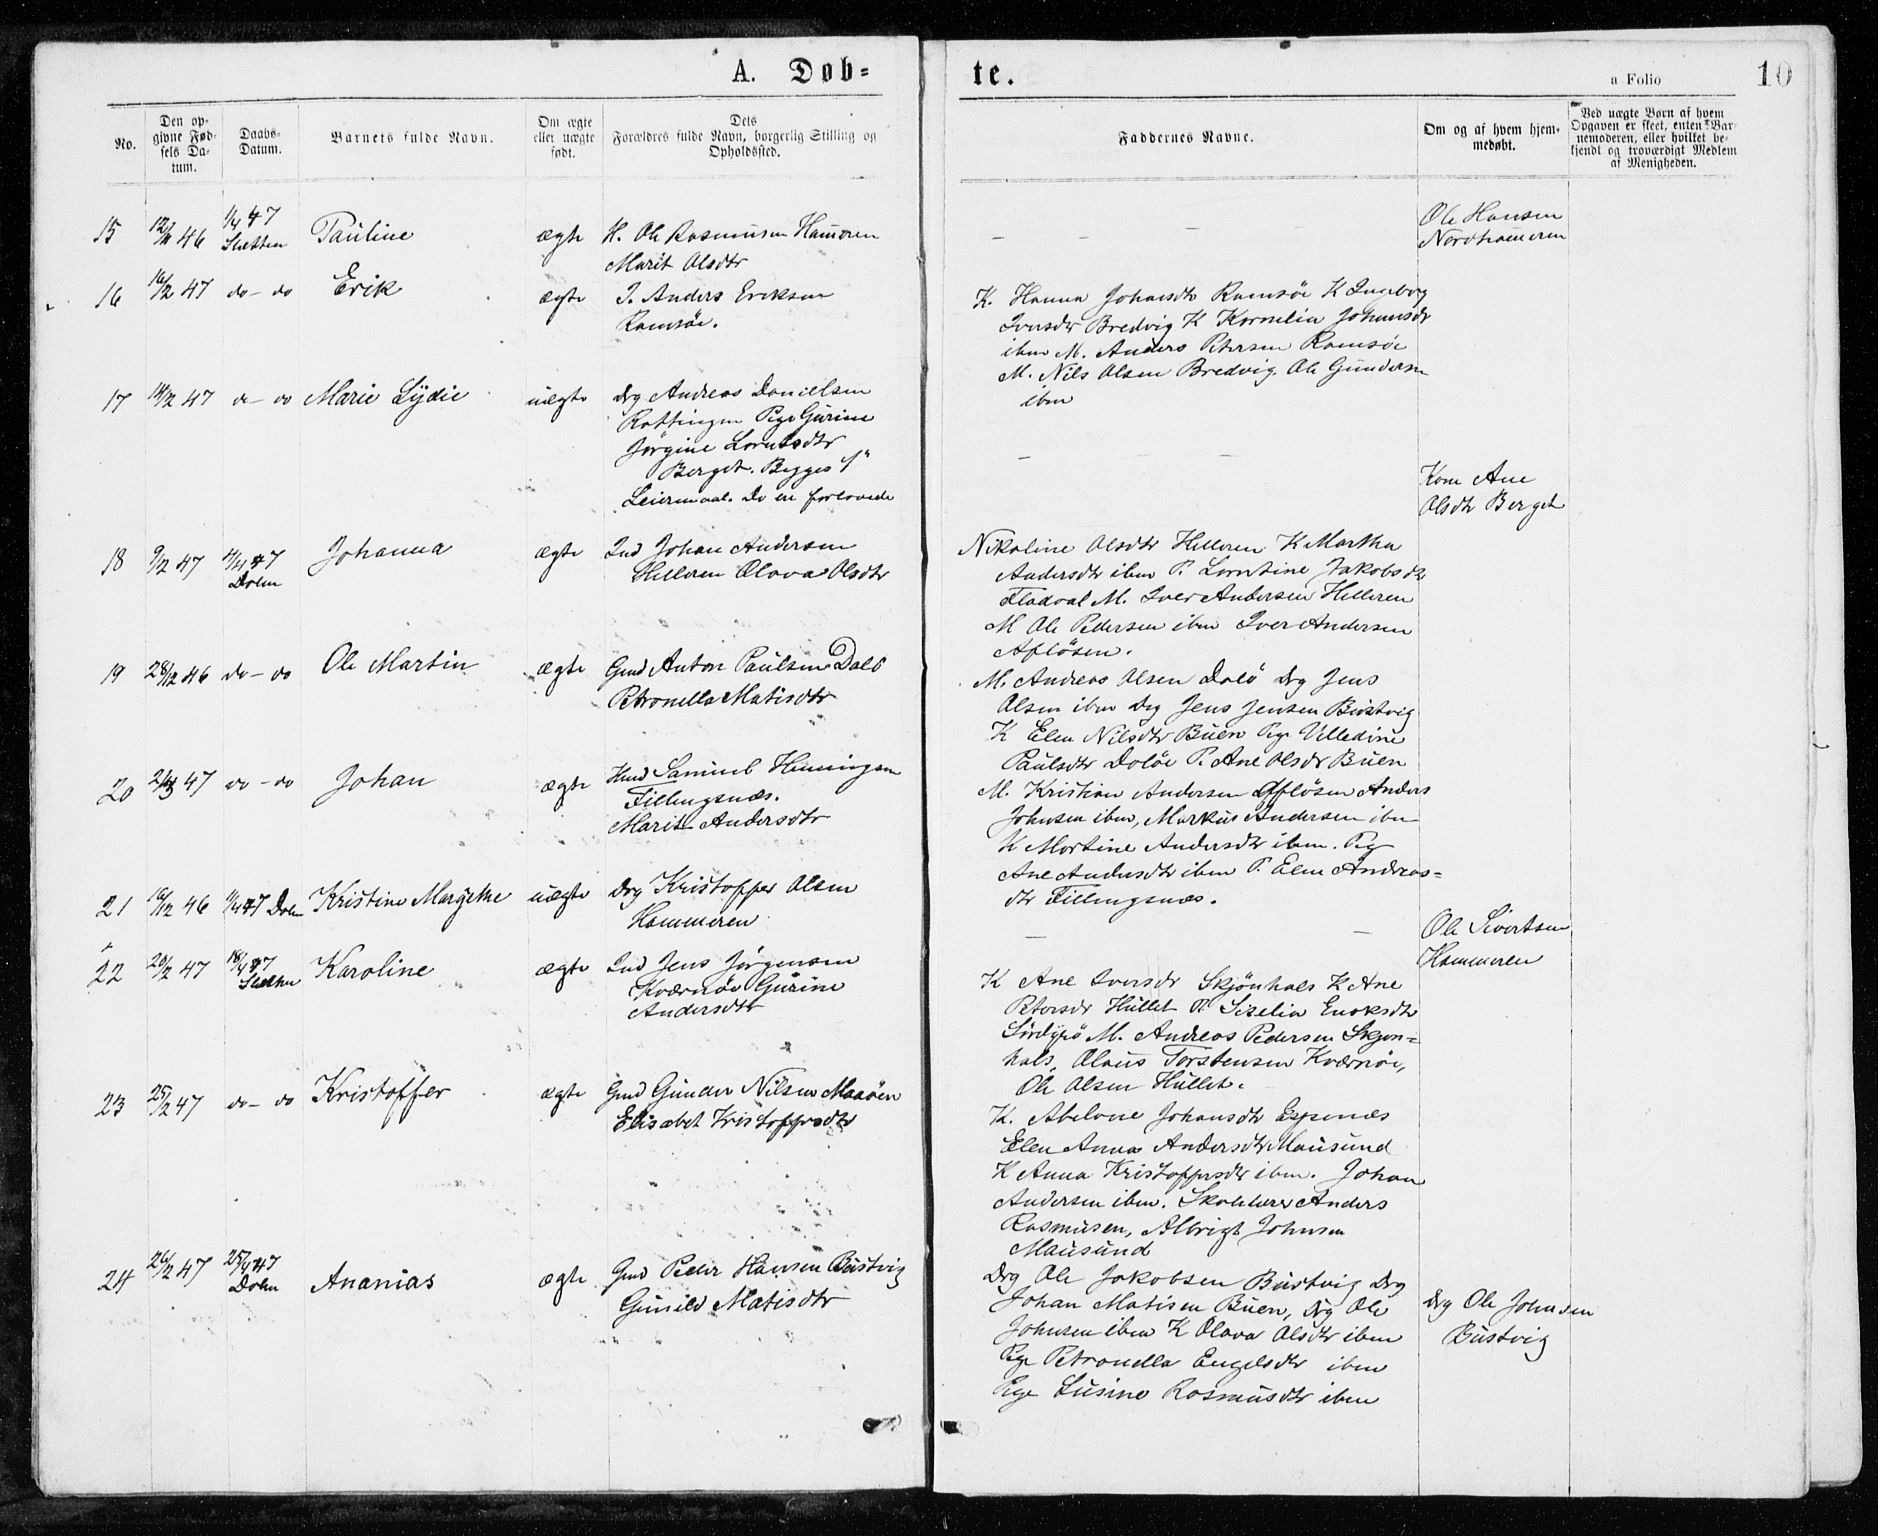 A. Døb=
te.
a Folio
10
No.
Den op-
givne Fød-
sels Da-
tum.
Daabs-
Datum.
Barnets fulde Navn.
Om ægte
eller uægte
født.
Dets
Forældres fulde Navn, borgerlig Stilling og
Opholdssted.
Faddernes Navne.
Om og af hvem hjem-
medøbt.
Ved uægte Børn af hvem
Opgaven er skeet, enten Bar-
nemoderen, eller hvilket be-
kjendt og troværdigt Medlem
af Menigheden.
15
46
1/4 47
Sletten
Pauline
ægte
H. Ole Rasmusen Hameren
Marit Olsdtr
— — — — —
Ole Hansen
Nordhameren
16
16/2 47
do – do
Erik
ægte
I. Anders Eriksen
Ramsöe.
K. Hanna Johansdtr Ramsöe K Ingeborg
Iversdtr Bredvig K Kornelia Johansdtr
ibm M. Anders Petersen Ramsöe
M. Nils Olsen Bredvig. Ole Gundersen
ibm
17
14/2 47
do – do
Marie Lydie
uægte
Drg Andreas Danielsen
Rottingen Pige Gurine
Jørgine Lorntsdtr
Berget. Begges 1"
Leiermaal. De ere forlovede
— — —
Kone Ane
Olsdtr Berget
18
9/2 47
47
Dolm
Johanna
ægte
Ind Johan Andersen
Helleren Olava Olsdtr
Nikoline Olsdtr Helleren K Martha
Andersdtr ibm P. Lorntine Jakobsdtr
Fladval M. Iver Andersen Helleren
M Ole Pedersen ibm Iver Andersen
Aflösen.
19
28/12 46
do – do
Ole Martin
ægte
Gmd Anton Paulsen Dolö
Petronella Matisdtr
M. Andreas Olsen Dolö Drg Jens
Olsen ibm Drg Jens Jensen Bustvig
K Elen Nilsdtr Buen Pige Ulledine
Paulsdtr Dolöe P. Ane Olsdtr Buen
20
47
do – do
Johan
ægte
Hmd Samuel Henningsen
Fillingsnæs.
Marit Andersdtr
M. Kristian Andersen Aflösen Anders
Johnsen ibm, Markus Andersen ibm
K Martine Andersdtr ibm. Pig
Ane Andersdtr ibm P. Elen Andreas=
dtr Fillingsnæs.
21
16/12 46
47 Dolm
Kristine Margrethe
uægte
Drg Kristoffer Olsen
Hammeren
— —
Ole Sivertsen
Hammeren
22
20/2 47
18/4 47
Sletten
Karoline
ægte
Ind Jens Jørgensen
Kværnöe Gurine
Andersdtr
K Ane Iversdtr Skjönhals K Ane
Petersdtr Hullet P. Siselia Enoksdtr
M. Andreas Pedersen Skjön=
hals, Olaus Torstensen Kværnöe,
Ole Olsen Hullet.
23
25/2 47
do – do
Kristoffer
ægte
Gmd Gunder Nilsen Maaöen
Elisabet Kristoffersdtr
K. Abelone Johansdtr Espenæs
Elen Anna Andersdtr Mausund
K Anna Kristoffersdtr ibm. Johan
Andersen ibm. Skolelærer Anders
Rasmusen, Albrigt Johnsen
Mausund
24
26/2 47
25/4 47
Dolm
Ananias
ægte
Gmd Peder Hansen Bustvig
Gunild Matisdtr
Drg Ole Jakobsen Bustvig Drg
Johan Matisen Buen, Drg Ole
Johnsen ibm K Olava Olsdtr ibm
Pige Petronella Engelsdtr ibm
Pige Lusine Rasmusdtr ibm
Drg Ole Johnsen
Bustvig